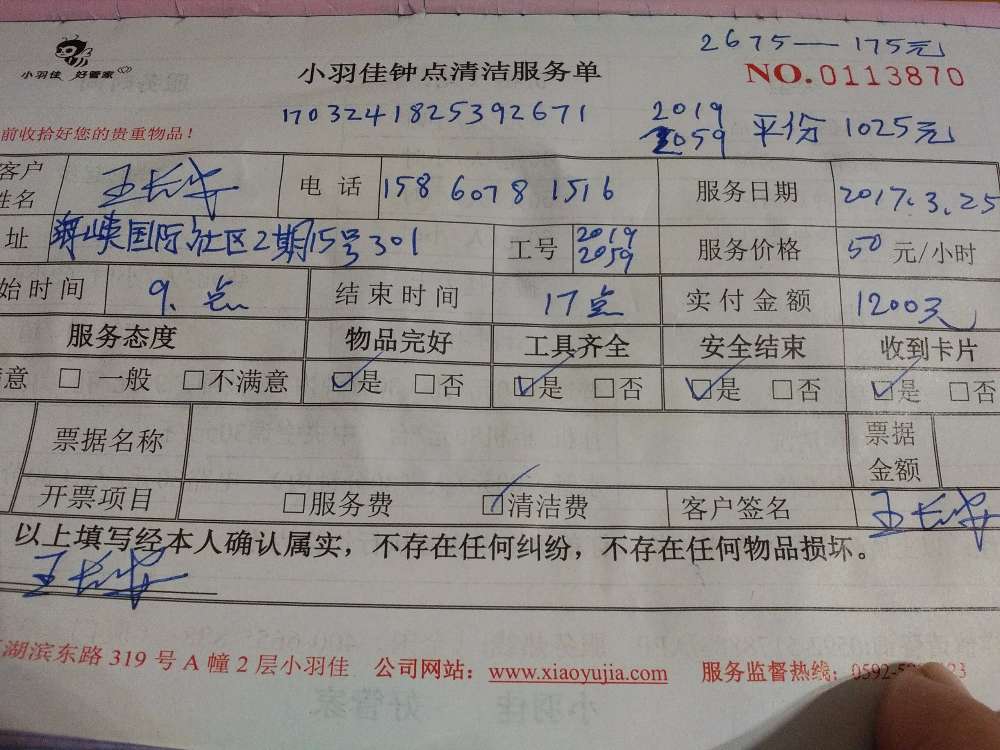 2675— 175元
小羽佳 好管家
小羽佳钟点清洁服务单
NO.0113870
17032418253926​71
2019
2059 平份 1025元
前收拾好您的贵重物品!
客户姓名 王长华 电话 158 6078 1516 服务日期 2017.3.25
址 海峡国际社区2期15号301 工号 2019 2059 服务价格 50 元/小时
始时间 9.点 结束时间 17点 实付金额 1200元
服务态度 物品完好 工具齐全 安全结束 收到卡片
意 □ 一般 □不满意 ☑是 □否 ☑是 □否 ☑是 □否 ☑是 □否
票据名称 票据金额
开票项目 □服务费 ☑清洁费 客户签名 王长华
以上填写经本人确认属实，不存在任何纠纷，不存在任何物品损坏。
王长华
湖滨东路 319 号 A 幢 2 层小羽佳 公司网站：www.xiaoyujia.com 服务监督热线：0592-5